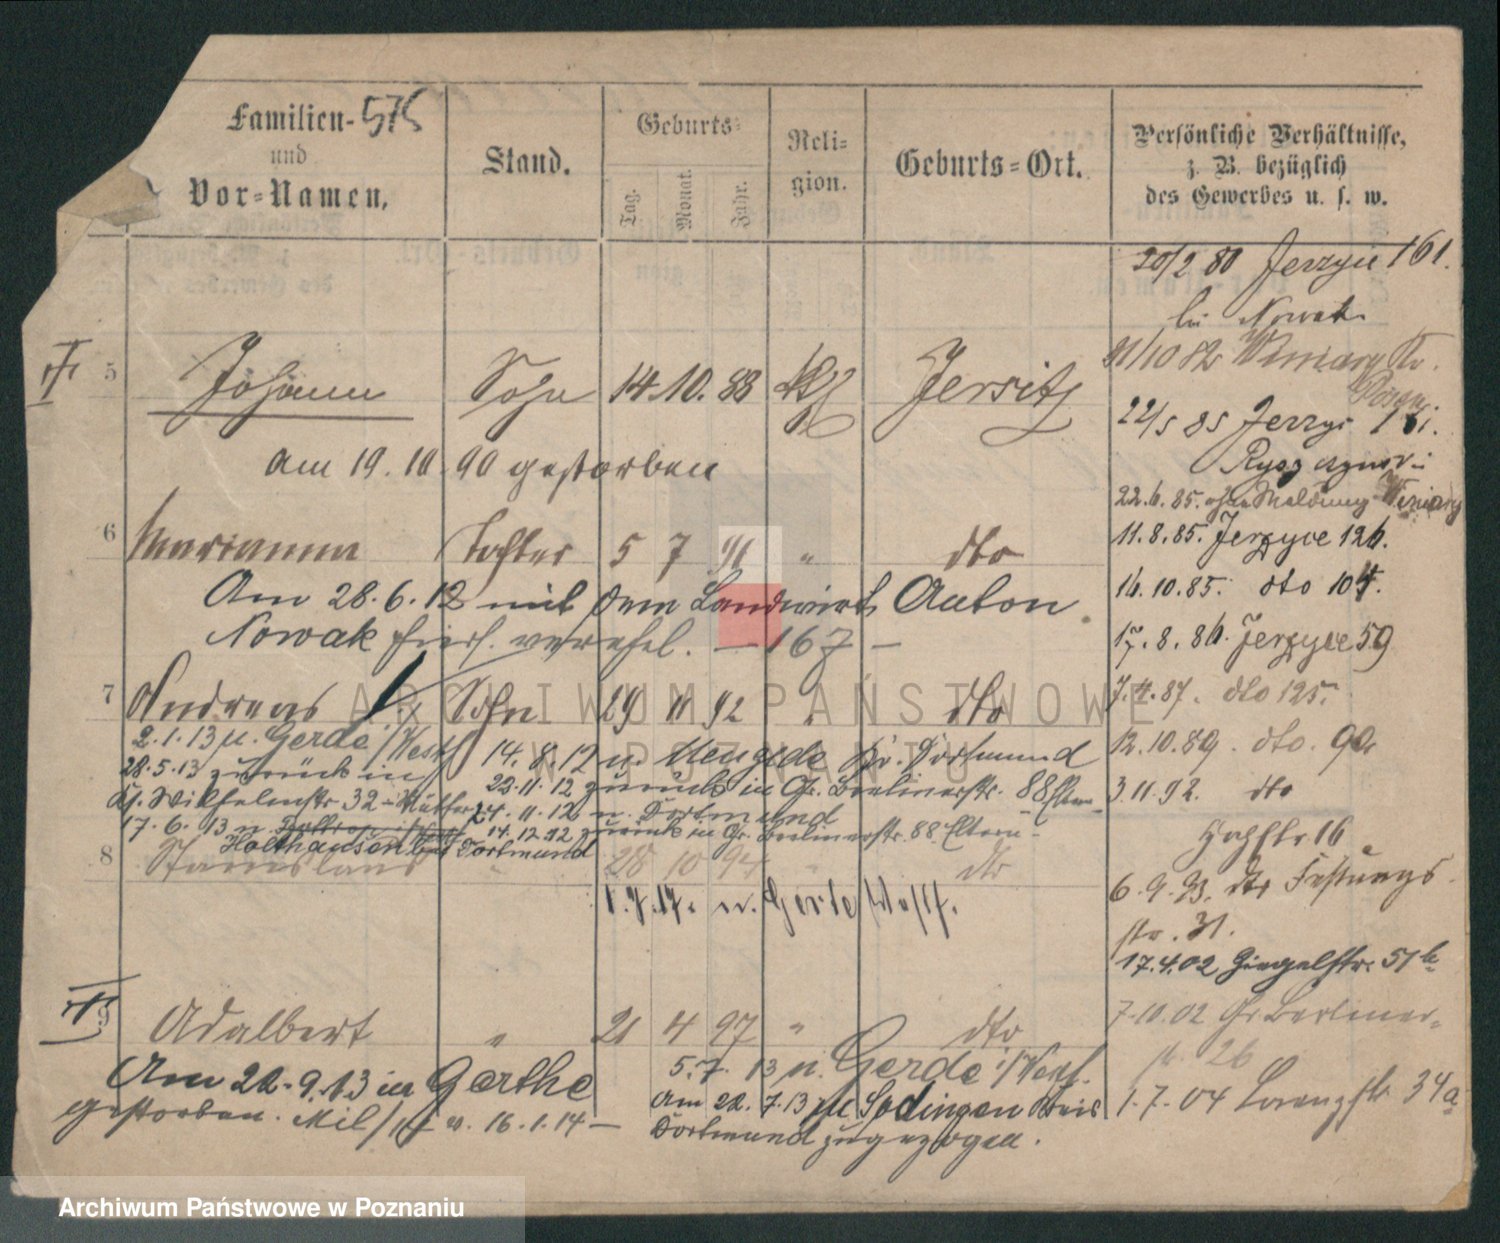 Familien- 575
und
Vor-Namen.
Stand.
Geburts-
Tag.
Monat.
Jahr.
Reli-
gion.
Geburts-Ort.
Persönliche Verhältnisse,
z. B. bezüglich
des Gewerbes u. s. w.
20/2 80 Jerzyce 161.
bei Nowak
5 Johann Sohn 14. 10. 88 Jersitz
am 19. 10. 90 gestorben
6 Marianna Tochter 5 7 91 " dto
Am 28. 6. 12 mit dem Landwirt Anton
Nowak hiers. verehel. — 167 —
7 Andreas Sohn 29 11 92 " dto
2.1.13 n. Gerde i/Westf
28.5.13 zurück in
Gr. Wilhelmstr 32 - Mutter
17. 6. 13 n.
Holthausen bei Dortmund
14. 8. 12 n. Mengede Kr. Dortmund
22. 11. 12 zurück in Gr. Berlinerstr. 88 Eltern
24. 11. 12 n. Dortmund
14. 12. 12 zurück in Gr. Berlinerstr. 88 Eltern
8 Stanislaus " 28 10 94 " dto
1. 7. 17. n. Gerte Westf.
9 Adalbert " 21 4 97 " dto
5. 7. 13 n. Gerde i/Westf.
Am 22. 9. 13 in Gerthe
gestorben. v. 16. 1. 14 —
Am 22. 7. 13 in Sodingen Kreis
Dortmund zugezogen.
31/10 82 Winiary Kr.
Posen
22/5 85 Jerzyc 161.
22. 6. 85. ohne Meldung Winiary
11. 8. 85. Jerzyce 126.
16. 10. 85. dto 104.
17. 8. 86. Jerzyce 59
7. 4. 87. dto 125.
12. 10. 89. dto. 90.
3. 11. 92. dto
Hochstr 16
6. 9. 93. dto Festungs-
str. 31.
17. 4. 02 Ziegelstr. 51b
7. 10. 02 Gr. Berliner-
str. 26
1. 7. 04 Lorenzstr 34a
ARCHIWUM PAŃSTWOWE
W POZNANIU
Archiwum Państwowe w Poznaniu